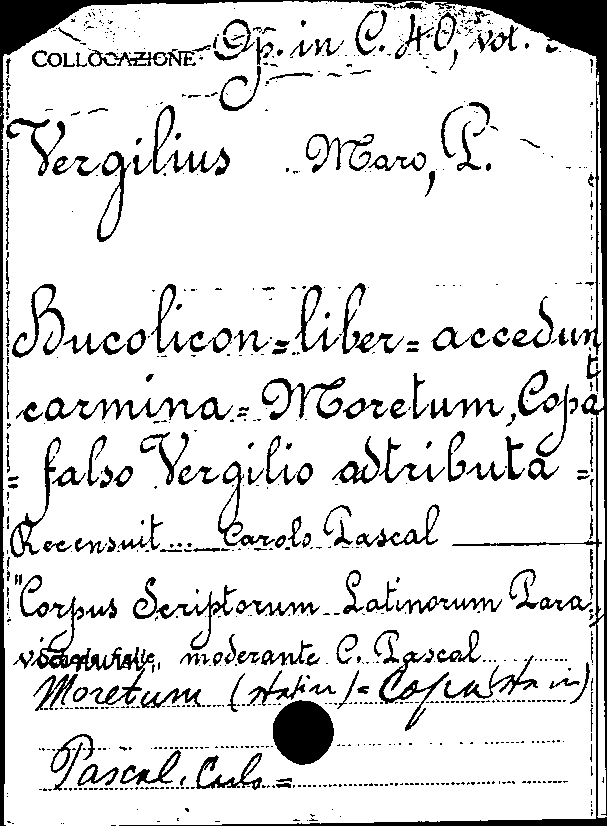 COLLOCAZIONE Op. in C. 40, vol.
Vergilius Maro, P.
Bucolicon=liber=accedunt
carmina=Moretum, Copa
= falso Vergilio adtributa =
Recensuit... Carolo Pascal
"Corpus Scriptorum Latinorum Para
moderante C. Pascal
Moretum ( ) = Copa
Pascal, Carlo =